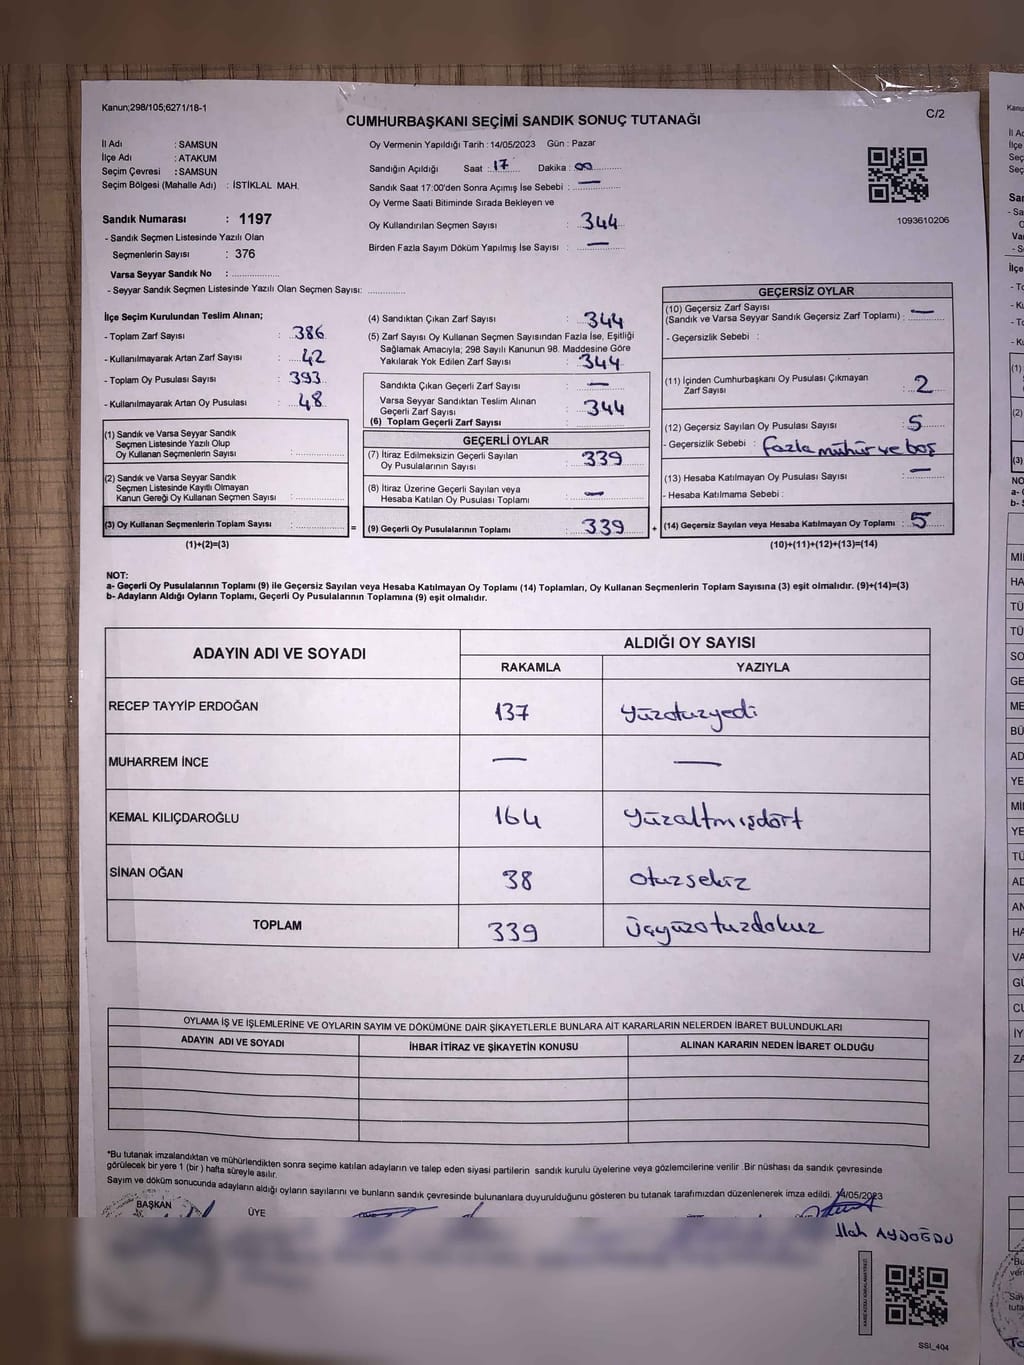 Kanun;298/105;6271/18-1
C/2
CUMHURBAŞKANI SEÇİMİ SANDIK SONUÇ TUTANAĞI
İl Adı : SAMSUN
İlçe Adı : ATAKUM
Seçim Çevresi : SAMSUN
Seçim Bölgesi (Mahalle Adı) : İSTİKLAL MAH.
Sandık Numarası : 1197
- Sandık Seçmen Listesinde Yazılı Olan
Seçmenlerin Sayısı : 376
Varsa Seyyar Sandık No :
- Seyyar Sandık Seçmen Listesinde Yazılı Olan Seçmen Sayısı:
Oy Vermenin Yapıldığı Tarih : 14/05/2023 Gün : Pazar
Sandığın Açıldığı Saat : 17 Dakika : 00
Sandık Saat 17:00'den Sonra Açımış İse Sebebi : —
Oy Verme Saati Bitiminde Sırada Bekleyen ve
Oy Kullandırılan Seçmen Sayısı : 344
Birden Fazla Sayım Döküm Yapılmış İse Sayısı : —
1093610206
İlçe Seçim Kurulundan Teslim Alınan;
- Toplam Zarf Sayısı : 386
- Kullanılmayarak Artan Zarf Sayısı : 42
- Toplam Oy Pusulası Sayısı : 393
- Kullanılmayarak Artan Oy Pusulası : 48
(1) Sandık ve Varsa Seyyar Sandık
Seçmen Listesinde Yazılı Olup
Oy Kullanan Seçmenlerin Sayısı :
(2) Sandık ve Varsa Seyyar Sandık
Seçmen Listesinde Kayıtlı Olmayan
Kanun Gereği Oy Kullanan Seçmen Sayısı :
(3) Oy Kullanan Seçmenlerin Toplam Sayısı : =
(1)+(2)=(3)
(4) Sandıktan Çıkan Zarf Sayısı : 344
(5) Zarf Sayısı Oy Kullanan Seçmen Sayısından Fazla İse, Eşitliği
Sağlamak Amacıyla; 298 Sayılı Kanunun 98. Maddesine Göre
Yakılarak Yok Edilen Zarf Sayısı : 344
Sandıkta Çıkan Geçerli Zarf Sayısı : —
Varsa Seyyar Sandıktan Teslim Alınan
Geçerli Zarf Sayısı : 344
(6) Toplam Geçerli Zarf Sayısı :
GEÇERLİ OYLAR
(7) İtiraz Edilmeksizin Geçerli Sayılan
Oy Pusulalarının Sayısı : 339
(8) İtiraz Üzerine Geçerli Sayılan veya
Hesaba Katılan Oy Pusulası Toplamı : —
(9) Geçerli Oy Pusulalarının Toplamı : 339 +
GEÇERSİZ OYLAR
(10) Geçersiz Zarf Sayısı
(Sandık ve Varsa Seyyar Sandık Geçersiz Zarf Toplamı) : —
- Geçersizlik Sebebi :
(11) İçinden Cumhurbaşkanı Oy Pusulası Çıkmayan
Zarf Sayısı : 2
(12) Geçersiz Sayılan Oy Pusulası Sayısı : 5
- Geçersizlik Sebebi : fazla mühür ve boş
(13) Hesaba Katılmayan Oy Pusulası Sayısı : —
- Hesaba Katılmama Sebebi :
(14) Geçersiz Sayılan veya Hesaba Katılmayan Oy Toplamı : 5
(10)+(11)+(12)+(13)=(14)
NOT:
a- Geçerli Oy Pusulalarının Toplamı (9) ile Geçersiz Sayılan veya Hesaba Katılmayan Oy Toplamı (14) Toplamları, Oy Kullanan Seçmenlerin Toplam Sayısına (3) eşit olmalıdır. (9)+(14)=(3)
b- Adayların Aldığı Oyların Toplamı, Geçerli Oy Pusulalarının Toplamına (9) eşit olmalıdır.
ADAYIN ADI VE SOYADI
ALDIĞI OY SAYISI
RAKAMLA YAZIYLA
RECEP TAYYİP ERDOĞAN 137 yüzotuzyedi
MUHARREM İNCE — —
KEMAL KILIÇDAROĞLU 164 yüzaltmışdört
SİNAN OĞAN 38 otuzsekiz
TOPLAM 339 üçyüzotuzdokuz
OYLAMA İŞ VE İŞLEMLERİNE VE OYLARIN SAYIM VE DÖKÜMÜNE DAİR ŞİKAYETLERLE BUNLARA AİT KARARLARIN NELERDEN İBARET BULUNDUKLARI
ADAYIN ADI VE SOYADI İHBAR İTİRAZ VE ŞİKAYETİN KONUSU ALINAN KARARIN NEDEN İBARET OLDUĞU
*Bu tutanak imzalandıktan ve mühürlendikten sonra seçime katılan adayların ve talep eden siyasi partilerin sandık kurulu üyelerine veya gözlemcilerine verilir. Bir nüshası da sandık çevresinde
görülecek bir yere 1 (bir) hafta süreyle asılır.
Sayım ve döküm sonucunda adayların aldığı oyların sayılarını ve bunların sandık çevresinde bulunanlara duyurulduğunu gösteren bu tutanak tarafımızdan düzenlenerek imza edildi. 14/05/2023
BAŞKAN ÜYE
AYDOĞDU
SSI_404